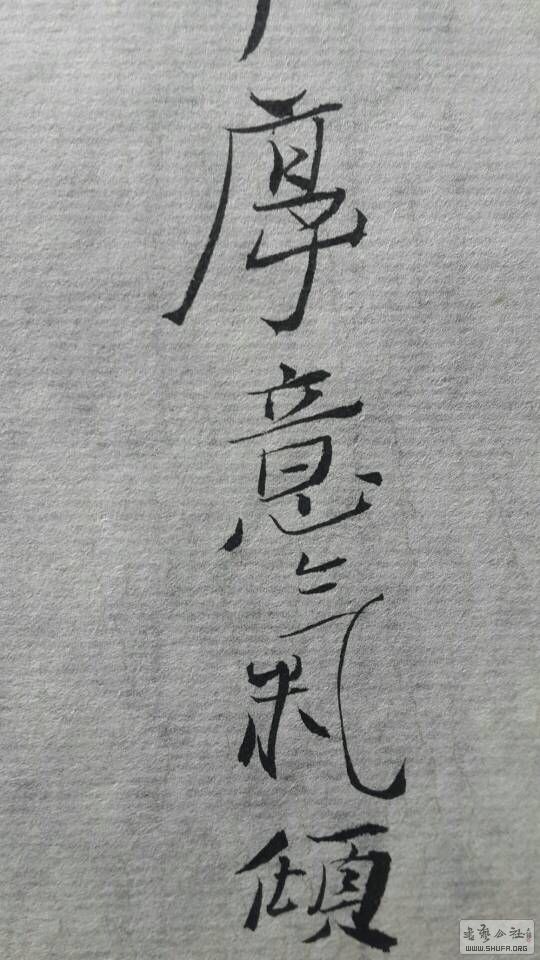 厚意氣傾
书艺公社
WWW.SHUFA.ORG